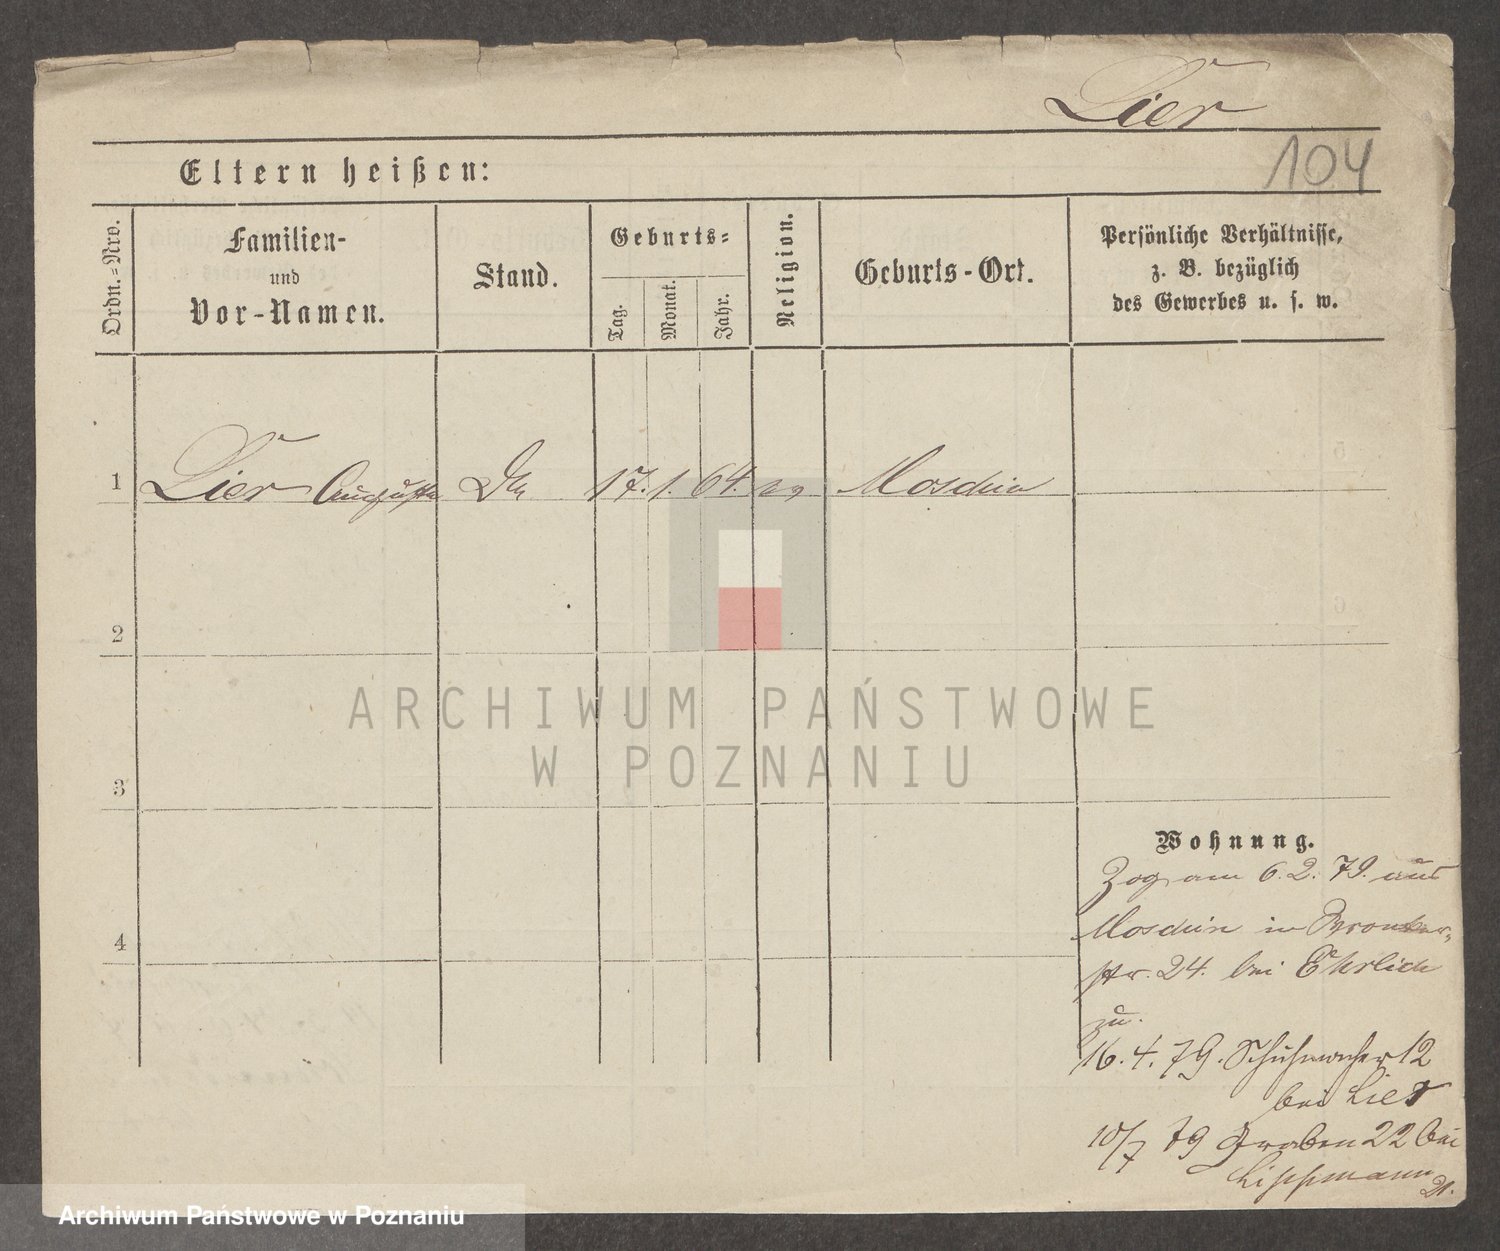 Lier
104
Eltern heißen:
Ordn.-Nro.
Familien-
und
Vor-Namen.
Stand.
Geburts-
Tag.
Monat.
Jahr.
Religion.
Geburts-Ort.
Persönliche Verhältnisse,
z. B. bezüglich
des Gewerbes u. s. w.
1 Lier Auguste 17. 1. 64. ev Moschin
2
3
4
ARCHIWUM PAŃSTWOWE
W POZNANIU
Wohnung.
Zog am 6. 2. 79. aus
Moschin in
str. 24. bei Ehrlich
zu.
16. 4. 79. Schuhmacher 12
bei Lier
10/7 79 Graben 22 bei
Lippmann
Archiwum Państwowe w Poznaniu